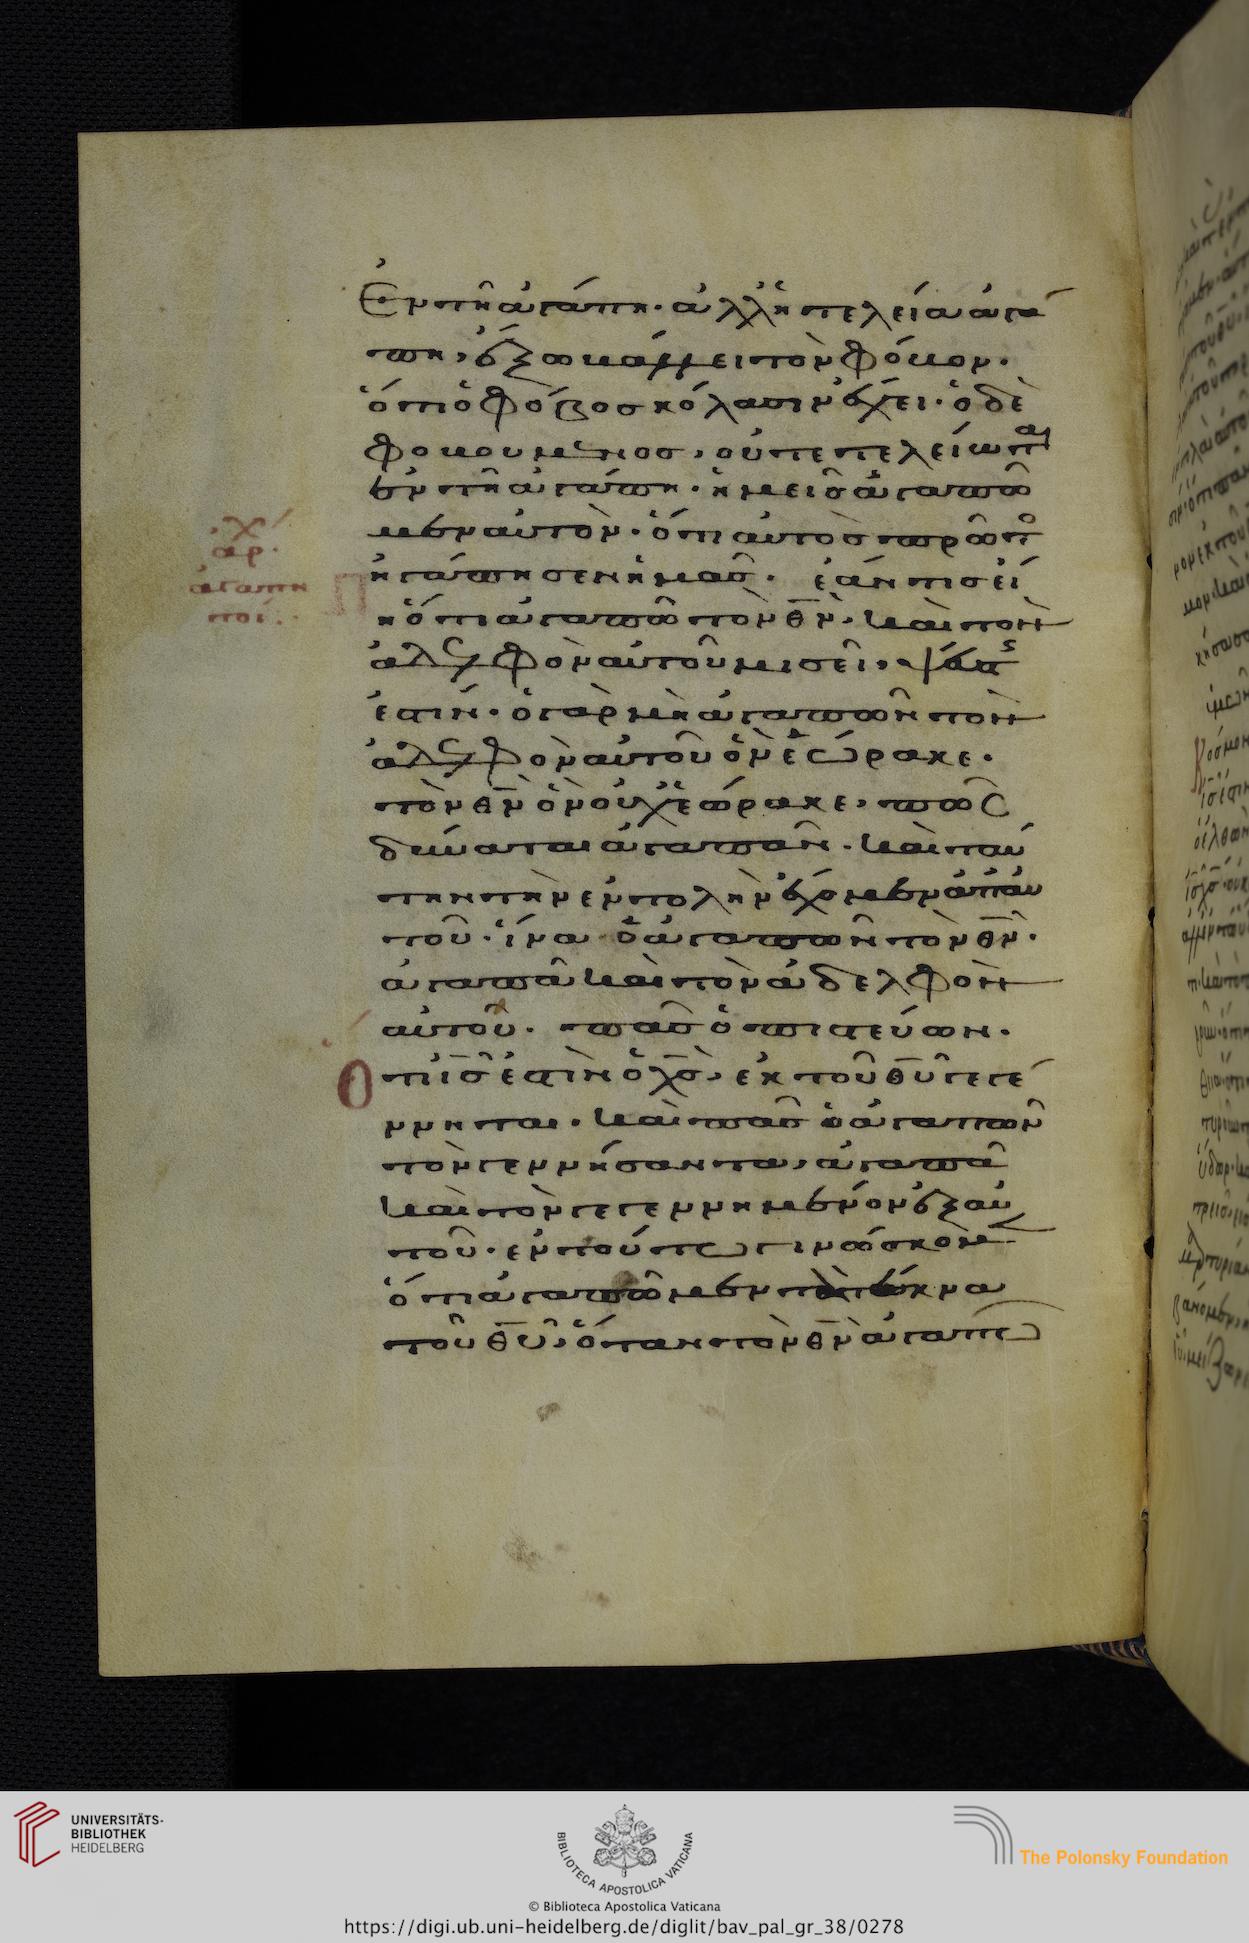 ἐν τῆ ἀγάπη· ἀλλ ἡ τελεία ἀγά
πη, ἔξω βάλλει τὸν φόβον·
ὅτι ὁ φόβος κόλασιν ἔχει· ὁ δὲ
φοβουμενος, οὐ τετελείωται
ἐν τῆ ἀγάπη· ἡμεῖς ἀγαπῶ
μεν αὐτὸν· ὅτι αὐτὸς πρῶτ
ἠγάπησεν ἡμᾶς· ἐάν τις εἴ
πη ὅτι ἀγαπῶ τὸν θν· καὶ τὸν
ἀδελφὸν αὐτοῦ μισεῖ, ψεύστης
ἐστίν· ὁ γὰρ μὴ ἀγαπῶν τὸν
ἀδελφὸν αὐτοῦ ὃν ἑώρακε·
τὸν θν ὃν οὐχ ἑώρακε, πῶς
δύναται ἀγαπᾶν· καὶ ταύ
την τὴν ἐντολὴν ἔχομεν ἀπ αὐ
τοῦ· ἵνα ὁ ἀγαπῶν τὸν θν·
ἀγαπᾶ καὶ τὸν ἀδελφὸν
αὐτοῦ· πᾶς ὁ πιστεύων·
ὅτι ις ἐστὶν ὁ χς, ἐκ τοῦ θυ γεγέ
ννηται· καὶ πᾶς ὁ ἀγαπῶν
τὸν γεννήσαντα, ἀγαπᾶ
καὶ τὸν γεγεννημένον ἐξ αὐ
τοῦ· ἐν τούτω γινώσκομεν
ὅτι ἀγαπῶμεν τὰ τέκνα
τοῦ θυ, ὅταν τὸν θν ἀγαπῶ
αρ·
ἀγαπη
τοί·
UNIVERSITÄTS-
BIBLIOTHEK
HEIDELBERG
BIBLIOTECA APOSTOLICA VATICANA
The Polonsky Foundation
© Biblioteca Apostolica Vaticana
https://digi.ub.uni-heidelberg.de/diglit/bav_pal_gr_38/0278